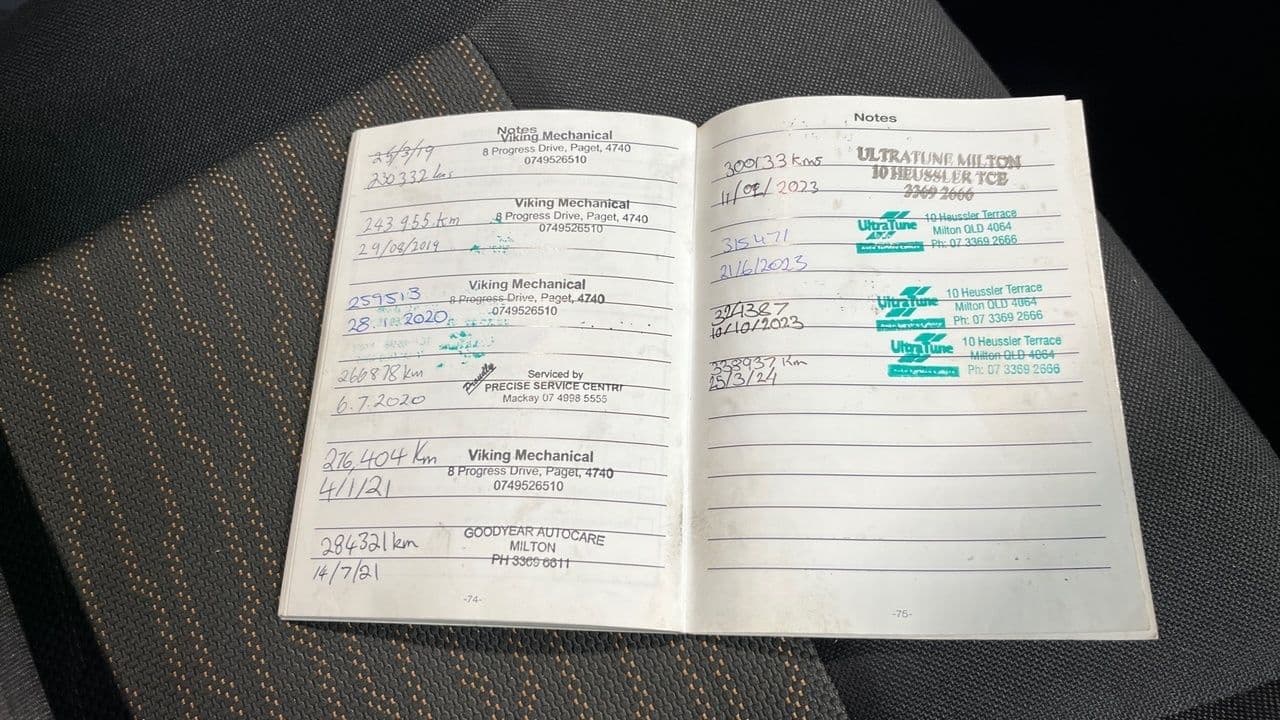 Notes
25/3/19
230332 kms
Viking Mechanical
8 Progress Drive, Paget, 4740
0749526510
243955 km
29/08/2019
Viking Mechanical
8 Progress Drive, Paget, 4740
0749526510
259513
28.1.2020
Viking Mechanical
8 Progress Drive, Paget, 4740
0749526510
266878 km
6.7.2020
Proudly
Serviced by
PRECISE SERVICE CENTRE
Mackay 07 4998 5555
276,404 Km
4/1/21
Viking Mechanical
8 Progress Drive, Paget, 4740
0749526510
284321 km
14/7/21
GOODYEAR AUTOCARE
MILTON
PH 3369 6611
-74-
Notes
300133 kms
11/01/2023
ULTRATUNE MILTON
10 HEUSSLER TCE
3369 2666
315471
21/6/2023
UltraTune
10 Heussler Terrace
Milton QLD 4064
Ph: 07 3369 2666
324387
10/10/2023
UltraTune
10 Heussler Terrace
Milton QLD 4064
Ph: 07 3369 2666
338937 Km
25/3/24
UltraTune
10 Heussler Terrace
Milton QLD 4064
Ph: 07 3369 2666
-75-